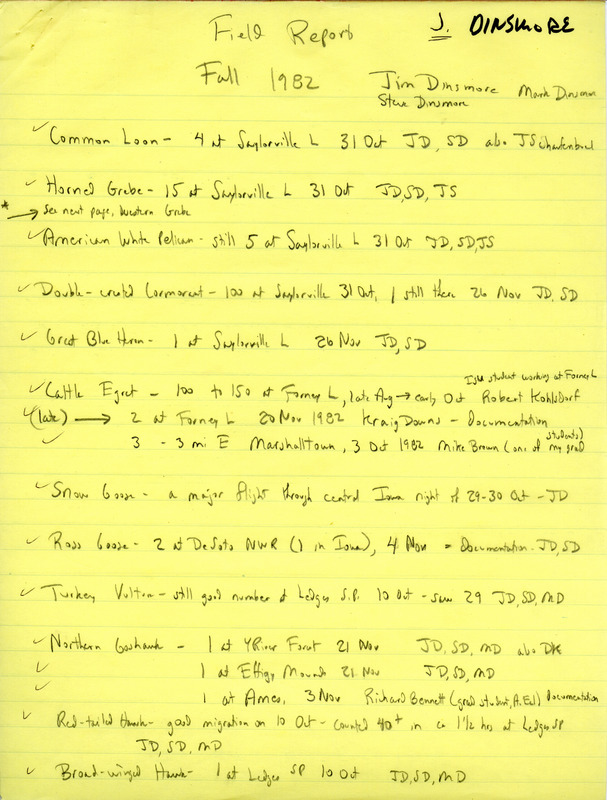 J. DINSMORE
Field Report
Fall 1982
Jim Dinsmore Mark Dinsmore
Steve Dinsmore
✓ Common Loon - 4 at Saylorville L 31 Oct JD, SD also JS
✓ Horned Grebe - 15 at Saylorville L 31 Oct JD, SD, JS
* → See next page, Western Grebe
✓ American White Pelican - still 5 at Saylorville L 31 Oct JD, SD, JS
✓ Double-crested Cormorant - 100 at Saylorville 31 Oct, 1 still there 26 Nov JD, SD
✓ Great Blue Heron - 1 at Saylorville L 26 Nov JD, SD
ISU student working at Forney L
✓ Cattle Egret - 100 to 150 at Forney L, late Aug → early Oct Robert Kohlsdorf
✓ (late) → 2 at Forney L 20 Nov 1982 Kraig Downs - documentation
✓ 3 - 3 mi E Marshalltown, 3 Oct 1982 Mike Brown (one of my grad students)
✓ Snow Goose - a major flight through central Iowa night of 29-30 Oct - JD
✓ Ross Goose - 2 at DeSoto NWR (1 in Iowa), 4 Nov = documentation - JD, SD
✓ Turkey Vulture - still good number at Ledges S.P. 10 Oct - saw 29 JD, SD, MD
✓ Northern Goshawk - 1 at Y River Forest 21 Nov JD, SD, MD also DK
✓ 1 at Effigy Mounds 21 Nov JD, SD, MD
✓ 1 at Ames, 3 Nov Richard Bennett (grad student, A. Ecl) documentation
✓ Red-tailed Hawk - good migration on 10 Oct - counted 40+ in ca 1 1/2 hrs at Ledges SP
JD, SD, MD
✓ Broad-winged Hawk - 1 at Ledges SP 10 Oct JD, SD, MD